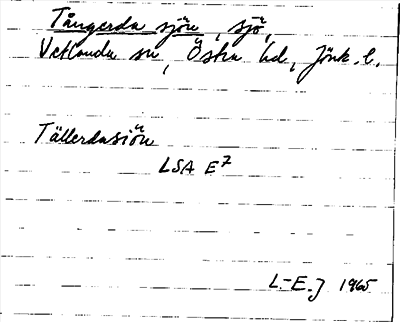 Tångerda sjön, sjö,
Vetlanda sn, Östra hd, Jönk. l.
Tällerdasiön
LSA E7
L.-E. J 1965